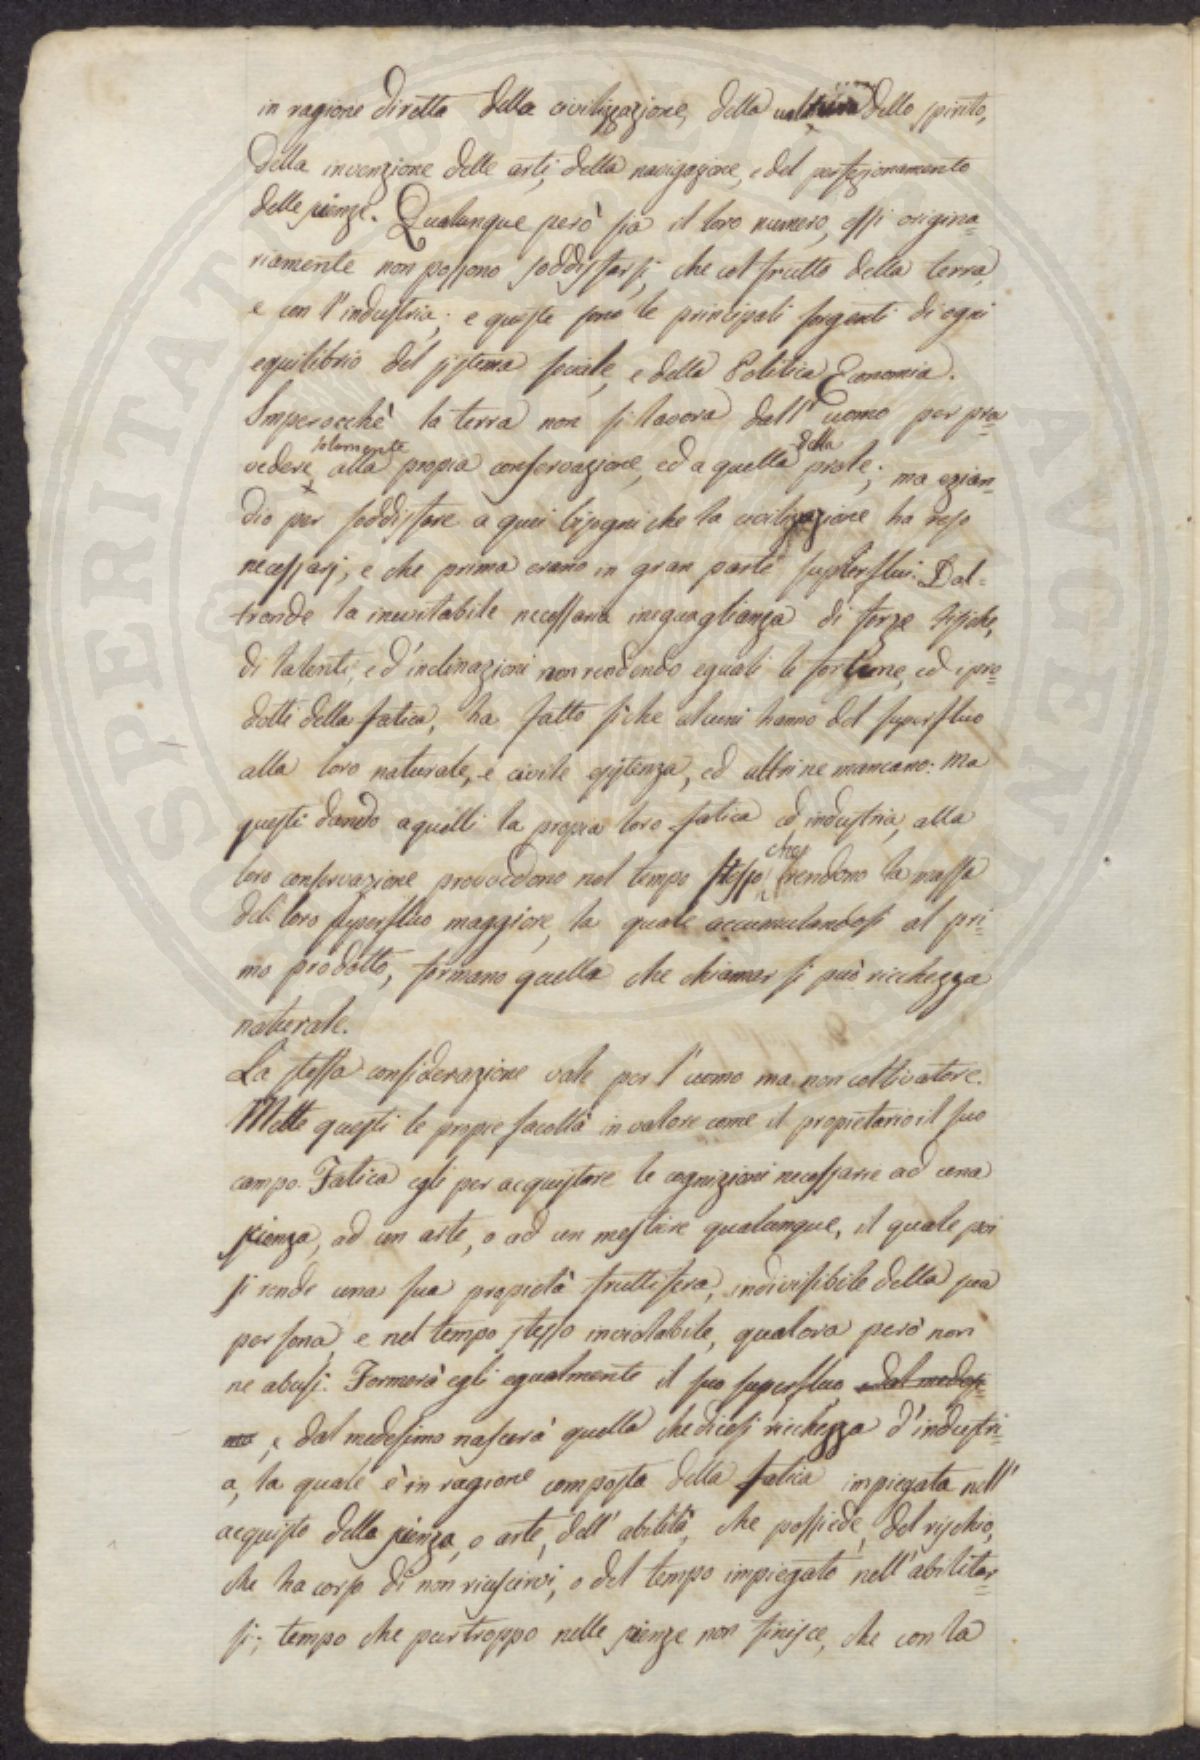 in ragione diretta della civilizzazione, della coltura dello spirito,
della invenzione delle arti, della navigazione, e del perfezionamento
delle scienze. Qualunque però sia il loro numero, essi origina=
riamente non possono soddisfarsi, che col frutto della terra,
e con l'industria; e queste sono le principali sorgenti di ogni
equilibrio del sistema sociale, e della Politica Economia.
Imperocchè la terra non si lavora dall'uomo per pro=
vedere solamente alla propia conservazione, ed a quella della prole; ma ezian=
dio per soddisfare a quei bisogni che la civilizazione ha reso
necessarj, e che prima erano in gran parte superflui. Dal=
tronde la inevitabile necessaria ineguaglianza di forze fisiche,
di talenti, e d'inclinazioni non rendendo eguali le fortune, ed i pro=
dotti della fatica, ha fatto si che alcuni hanno del superfluo
alla loro naturale, e civile esistenza, ed altri ne mancano: ma
questi dando a quelli la propia loro fatica ed industria, alla
loro conservazione provvedono nel tempo stesso che rendono la massa
del loro superfluo maggiore, la quale accumulandosi al pri=
mo prodotto, formano quella che chiamar si può ricchezza
naturale.
La stessa considerazione vale per l'uomo ma non coltivatore.
Mette questi le propie facoltà in valore come il propietario il suo
campo. Fatica egli per acquistare le cognizioni necessarie ad una
scienza, ad un arte, o ad un mestiere qualunque, il quale poi
si rende una sua propietà fruttifera, indivisibile della sua
persona, e nel tempo stesso inviolabile, qualora però non
ne abusi. Formerà egli egualmente il suo superfluo, e dal medesi=
mo, e dal medesimo nascerà quella che dicesi ricchezza d'industri=
a, la quale è in ragione composta della fatica impiegata nell'
acquisto della scienza, o arte, dell'abilità, che possiede, del rischio,
che ha corso di non riuscirvi, o del tempo impiegato nell'abilitar=
si; tempo che purtroppo nelle scienze non finisce, che con la
SPERITAT PUBLI AUGENT